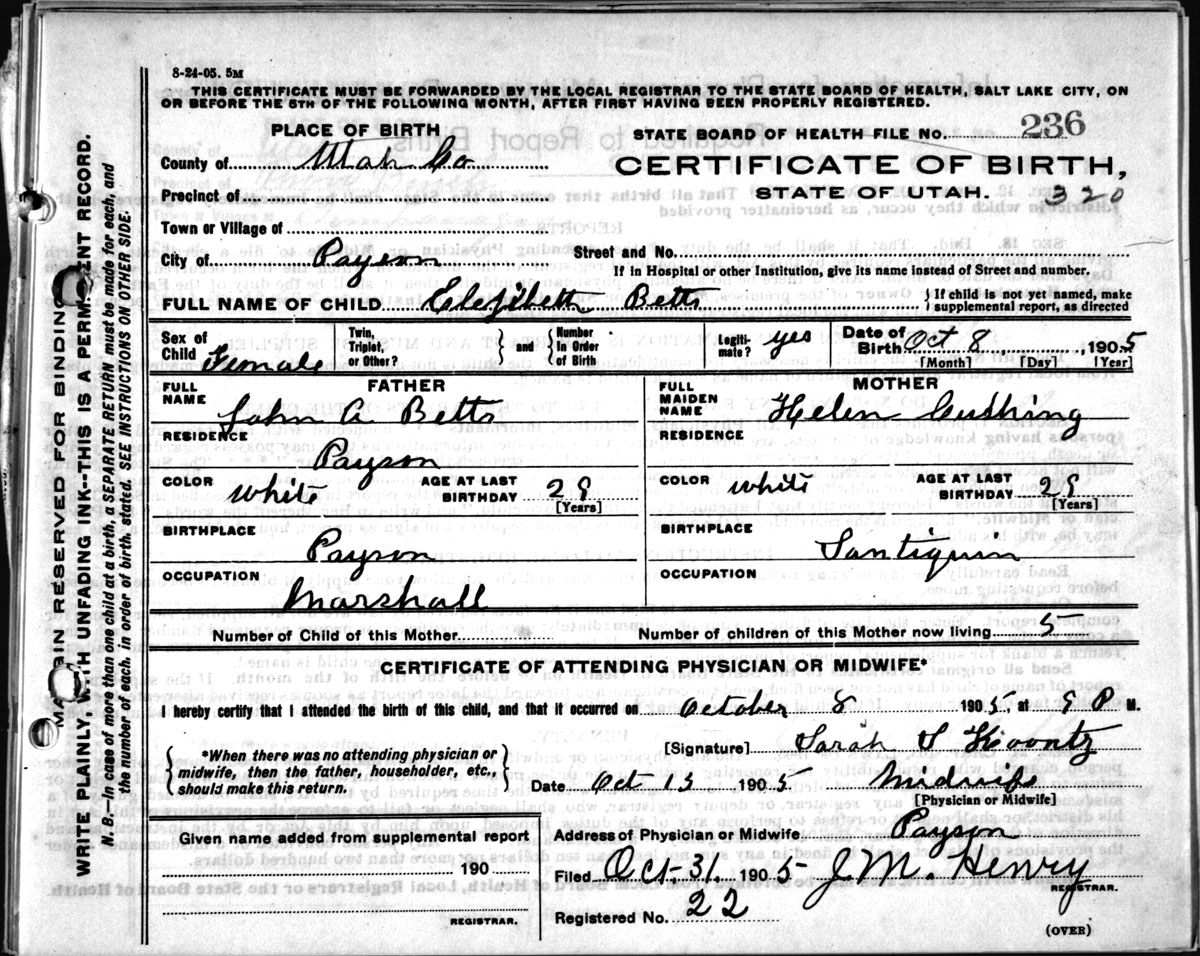 8-24-05. 5M
THIS CERTIFICATE MUST BE FORWARDED BY THE LOCAL REGISTRAR TO THE STATE BOARD OF HEALTH, SALT LAKE CITY, ON
OR BEFORE THE 5TH OF THE FOLLOWING MONTH, AFTER FIRST HAVING BEEN PROPERLY REGISTERED.
PLACE OF BIRTH
STATE BOARD OF HEALTH FILE NO. 236
County of Utah Co
CERTIFICATE OF BIRTH,
Precinct of
STATE OF UTAH. 320
Town or Village of
City of Payson
Street and No.
If in Hospital or other Institution, give its name instead of Street and number.
FULL NAME OF CHILD Elizibeth Betts { If child is not yet named, make supplemental report, as directed
Sex of Child Female
Twin, Triplet, or Other?
} and {
Number in Order of Birth
Legiti-mate? yes
Date of Birth Oct 8, 1905
[Month] [Day] [Year]
FATHER
MOTHER
FULL NAME John A Betts
FULL MAIDEN NAME Helen Cushing
RESIDENCE Payson
RESIDENCE
COLOR White AGE AT LAST BIRTHDAY 29 [Years]
COLOR White AGE AT LAST BIRTHDAY 29 [Years]
BIRTHPLACE Payson
BIRTHPLACE Santiquin
OCCUPATION Marshall
OCCUPATION
Number of Child of this Mother
Number of children of this Mother now living 5
CERTIFICATE OF ATTENDING PHYSICIAN OR MIDWIFE*
I hereby certify that I attended the birth of this child, and that it occurred on October 8 1905, at 9 P M.
{ *When there was no attending physician or midwife, then the father, householder, etc., should make this return. }
[Signature] Sarah S Koontz
Date Oct 13 1905 Midwife
[Physician or Midwife]
Given name added from supplemental report
190
REGISTRAR.
Address of Physician or Midwife Payson
Filed Oct-31. 1905 J. M. Henry
REGISTRAR.
Registered No. 22
(OVER)
MARGIN RESERVED FOR BINDING
WRITE PLAINLY, WITH UNFADING INK--THIS IS A PERMANENT RECORD.
N. B.--In case of more than one child at a birth, a SEPARATE RETURN must be made for each, and
the number of each, in order of birth, stated. SEE INSTRUCTIONS ON OTHER SIDE.